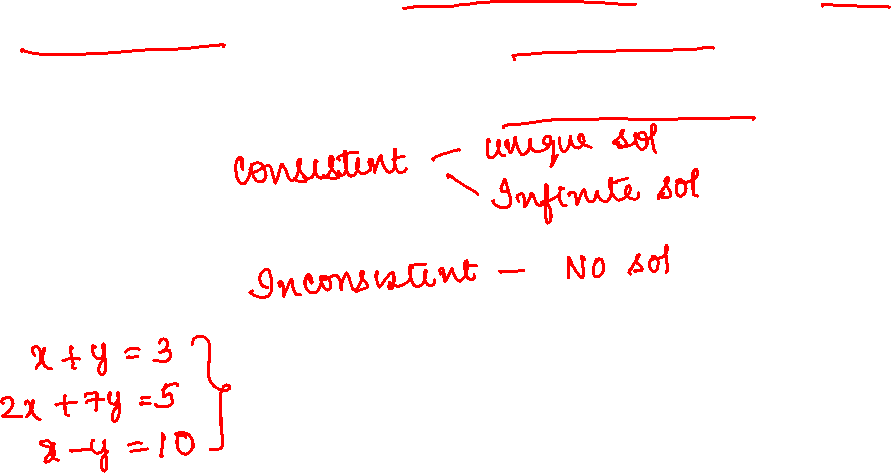 Consistent - unique sol
- Infinite sol
Inconsistent - No sol
x + y = 3
2x + 7y = 5
x - y = 10